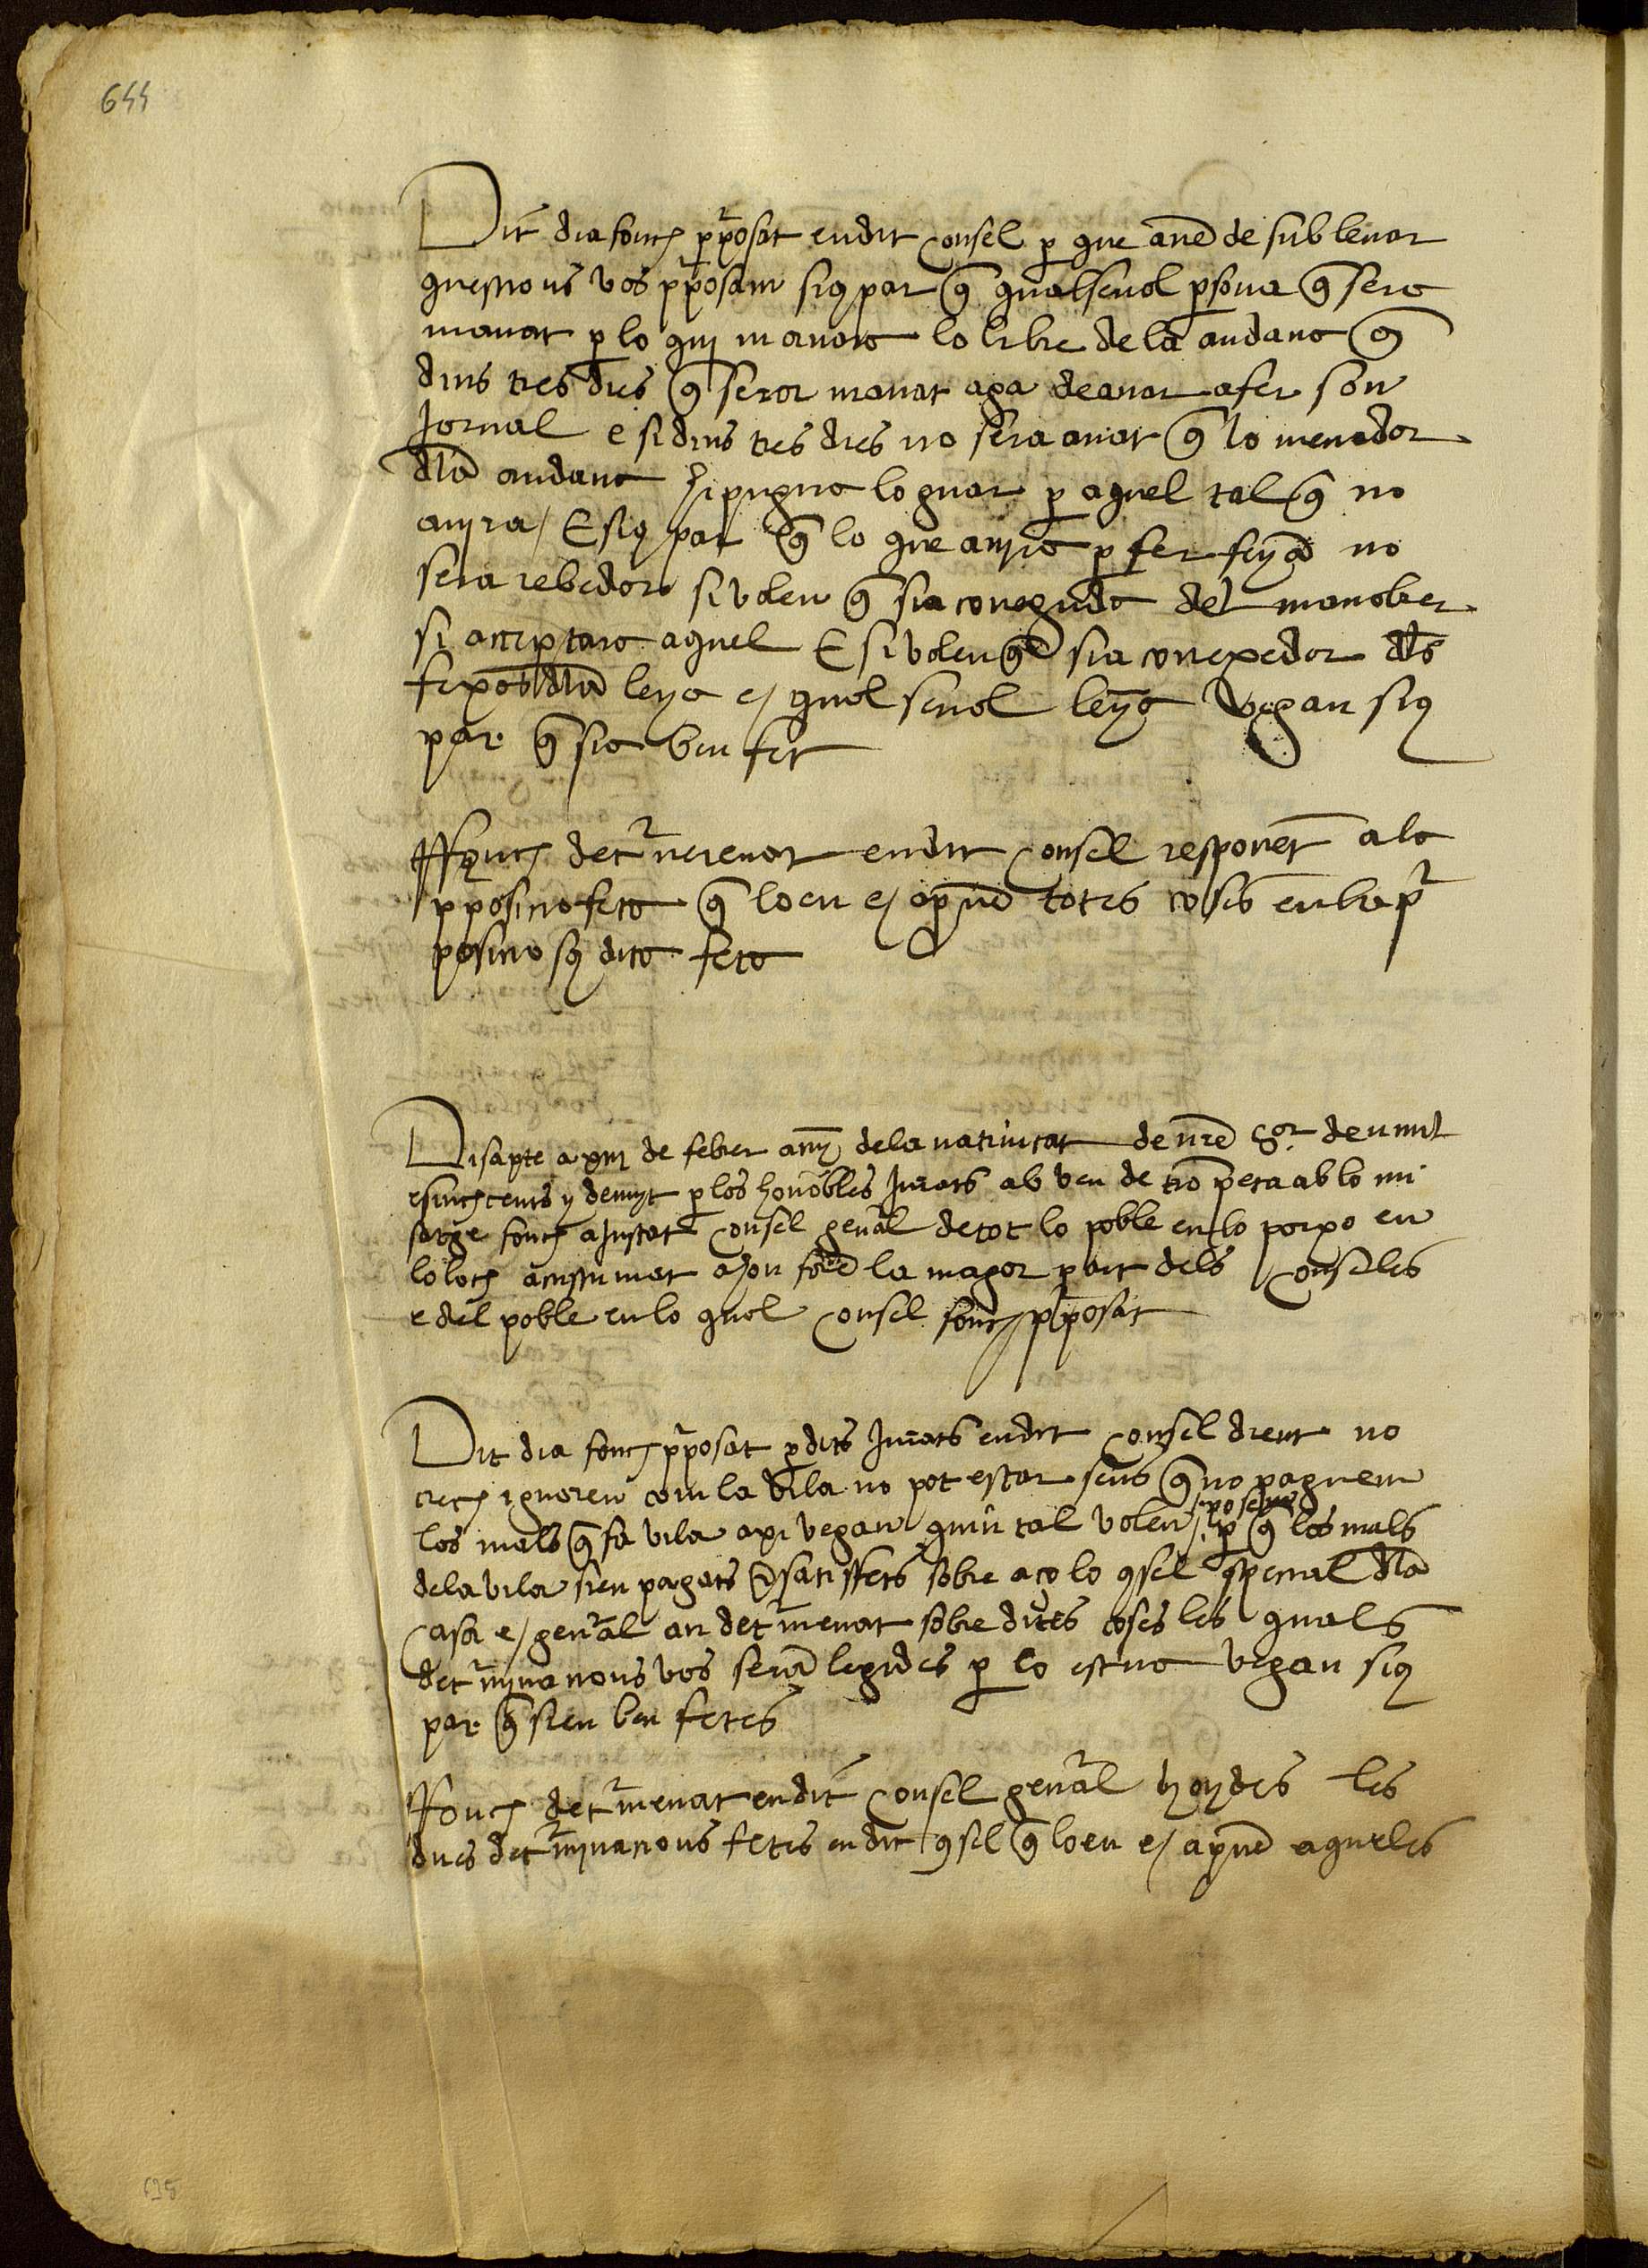 644
Dit dia fonch pposat en dit consel p que aue de sublevar
questions vos pposam siqs par q qualsevol psona q sera
manat p lo qui manara lo libre de la andana q
dins tres dies q seror manat aga de anar a fer son
jornal e si dins tres dies no sera anat q lo menador
dla andana hi pugna loguar p aquel tal q no
anyra / E siqs par q lo que anyra p fer feyna no
sera rebedor si volen q sia coneguda del manobre
si acceptara aquel E si volen q sia conexedor dls
fexos dla leya e qualsevol leya vegan siqs
par q sia ben fet
Ffonch detrmenat en dit consel responent a la
pposicio feta q loen e apven totes coses en la p
posicio sus dita feta
Disapte a xiiij de febrer any dela nativitat de nre Sor de mil
e sinchcents y devuyt p los honobles jurats ab veu de trompeta ab lo mi
satge fonch ajustat consel genal de tot lo poble en lo porxo en
lo loch acustumat a hon foren la magor part dels conseles
e del poble en lo qual consel fonch pposat
Dit dia fonch pposat p dits jurats en dit consel dient no
crech ignoren com la vila no pot estar sens q no paguem
los mals q fa vila axi vegan quin tal volen posem p q los mals
de la vila sien pagats e satisffets sobre aço lo qsel special dla
casa e genal an detrmenat sobre dites coses les quals
detrminacions vos seran legides p lo escriva vegan siqs
par q sien ben fetes
Ffonch detrmenat en dit consel genal hoydes les
dues detrminacions fetes en dit qsel q loen e apven aqueles